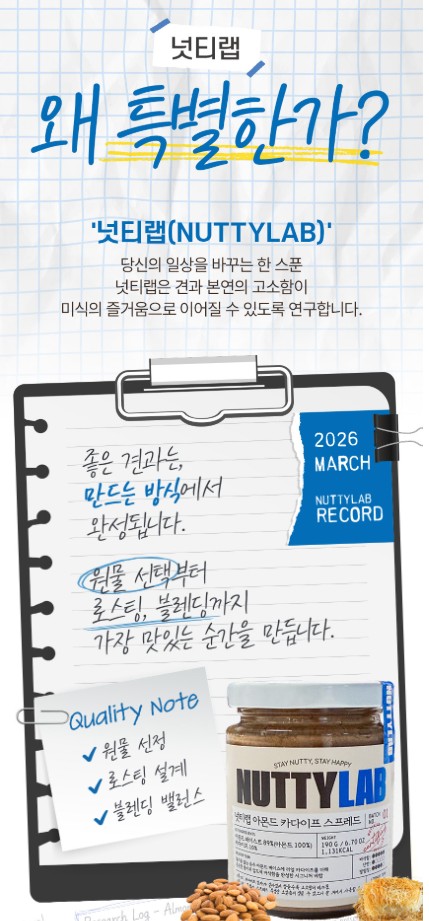 넛티랩
왜 특별한가?
'넛티랩(NUTTYLAB)'
당신의 일상을 바꾸는 한 스푼
넛티랩은 견과 본연의 고소함이
미식의 즐거움으로 이어질 수 있도록 연구합니다.
2026
MARCH
NUTTYLAB
RECORD
좋은 견과는,
만드는 방식에서
완성됩니다.
원물 선택부터
로스팅, 블렌딩까지
가장 맛있는 순간을 만듭니다.
Quality Note
원물 선정
로스팅 설계
블렌딩 밸런스
NUTTYLAB
STAY NUTTY, STAY HAPPY
NUTTYLAB
넛티랩 아몬드 카다이프 스프레드
BATCH
NO.
01
WEIGHT
190 G / 6.70 OZ
1,131KCAL
Research Log -